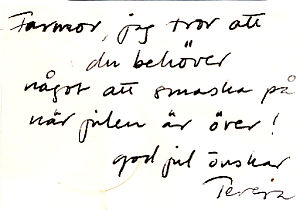 Farmor, jag tror att
du behöver
något att smaska på
när julen är över!
god jul önskar
Tereza